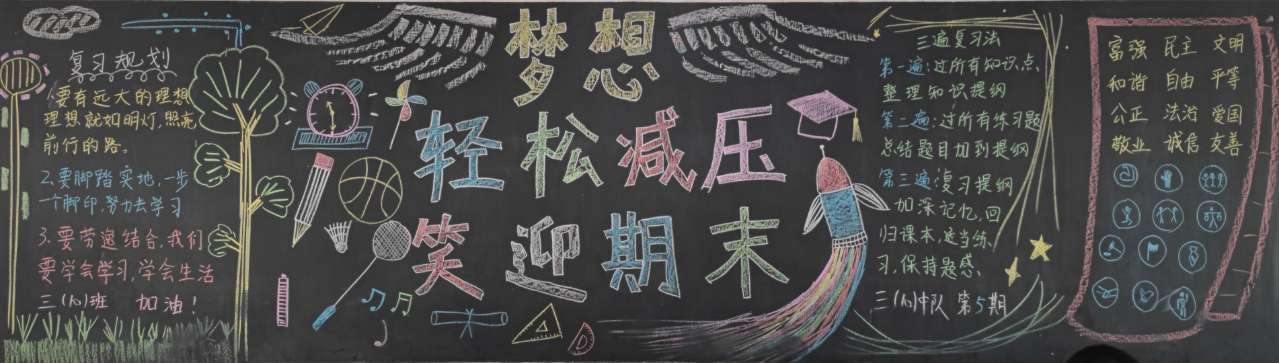 复习规划
1.要有远大的理想
理想就如明灯,照亮
前行的路。
2.要脚踏实地,一步
一个脚印,努力去学习
3.要劳逸结合,我们
要学会学习,学会生活
三(八)班 加油!
梦想
轻松减压
笑迎期末
三遍复习法
第一遍:过所有知识点、
整理知识提纲
第二遍:过所有练习题
总结题目加到提纲
第三遍:复习提纲
加深记忆,回
归课本,适当练
习,保持题感、
三(八)中队 第5期
富强 民主 文明
和谐 自由 平等
公正 法治 爱国
敬业 诚信 友善